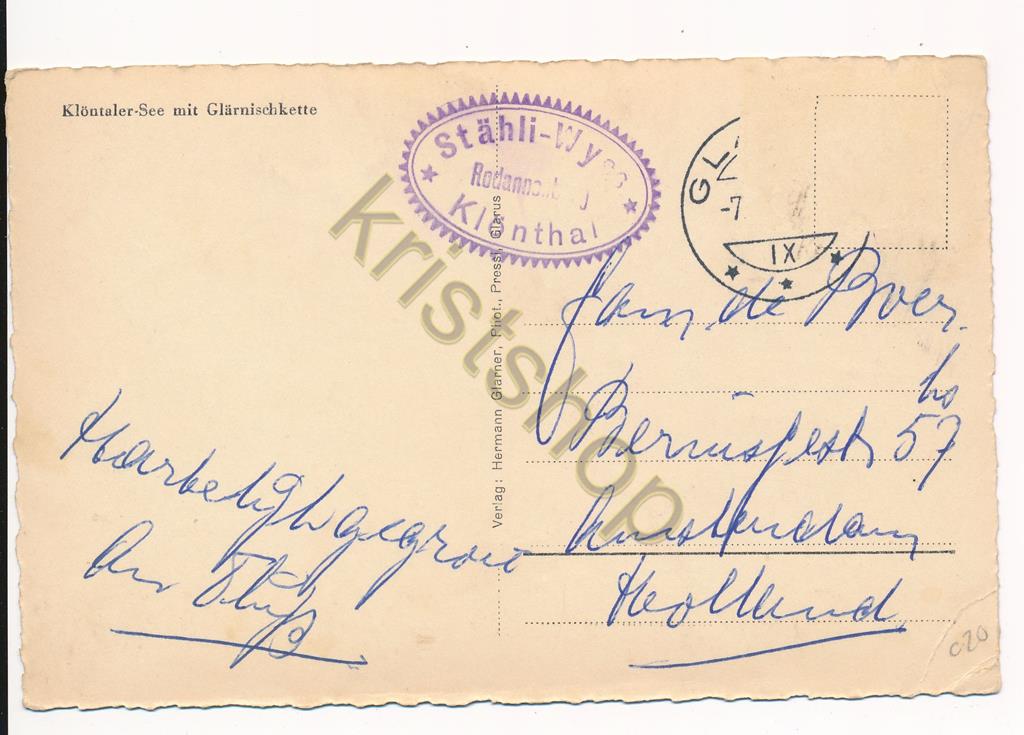 Klöntaler-See mit Glärnischkette
Stähli-Wyss
Klönthal
GL
-7
IX
kristshop
Verlag: Hermann Glarner, Phot., Pressl, Glarus
Fam. de Boer
hs
57
Amsterdam
Holland
Hartelijk gegroet
C20